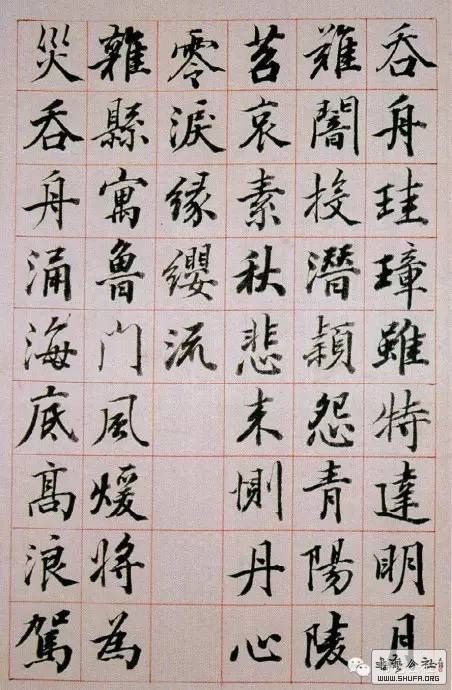 吞舟珪璋雖特達明月
難闇投潛穎怨青陽陵
苕哀素秋悲来惻丹心
零淚緣纓流
雜縣寓魯門風煖將為
災吞舟涌海底髙浪駕
書藝公社
WWW.SHUFA.ORG